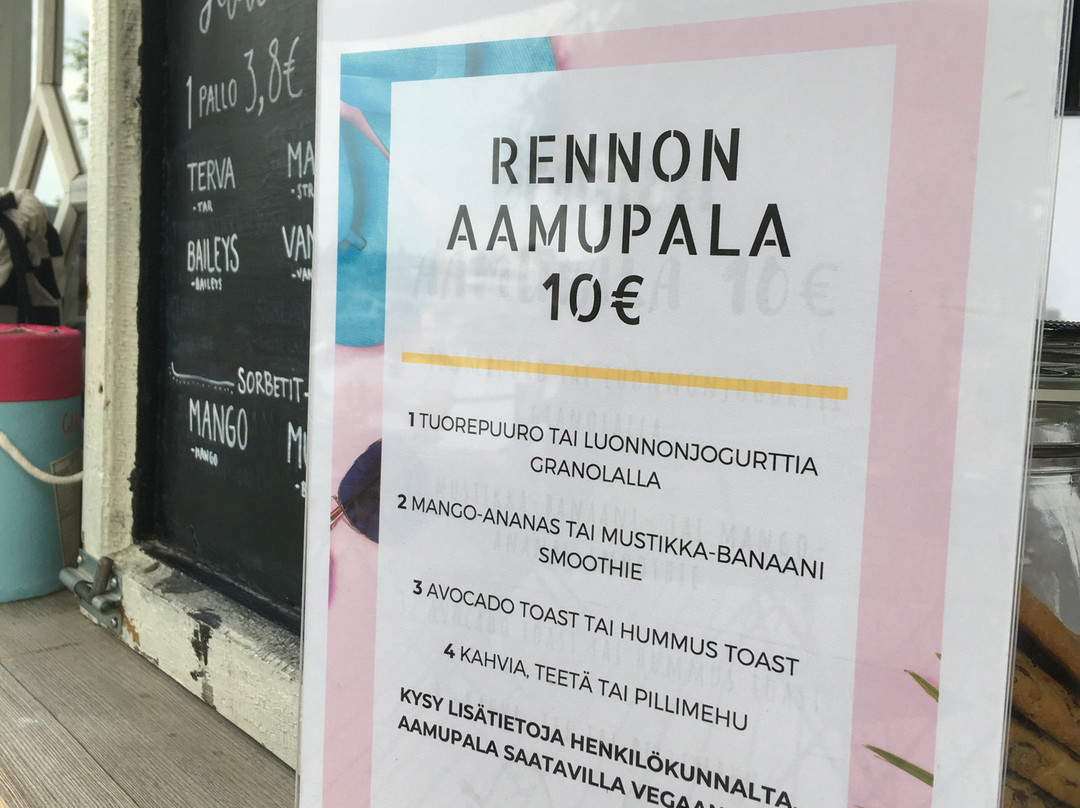 1 PALLO 3,8€
TERVA
-TAR
BAILEYS
-BAILEYS
SORBETIT
MANGO
-MANGO
RENNON
AAMUPALA
10€
1 TUOREPUURO TAI LUONNONJOGURTTIA
GRANOLALLA
2 MANGO-ANANAS TAI MUSTIKKA-BANAANI
SMOOTHIE
3 AVOCADO TOAST TAI HUMMUS TOAST
4 KAHVIA, TEETÄ TAI PILLIMEHU
KYSY LISÄTIETOJA HENKILÖKUNNALTA,
AAMUPALA SAATAVILLA